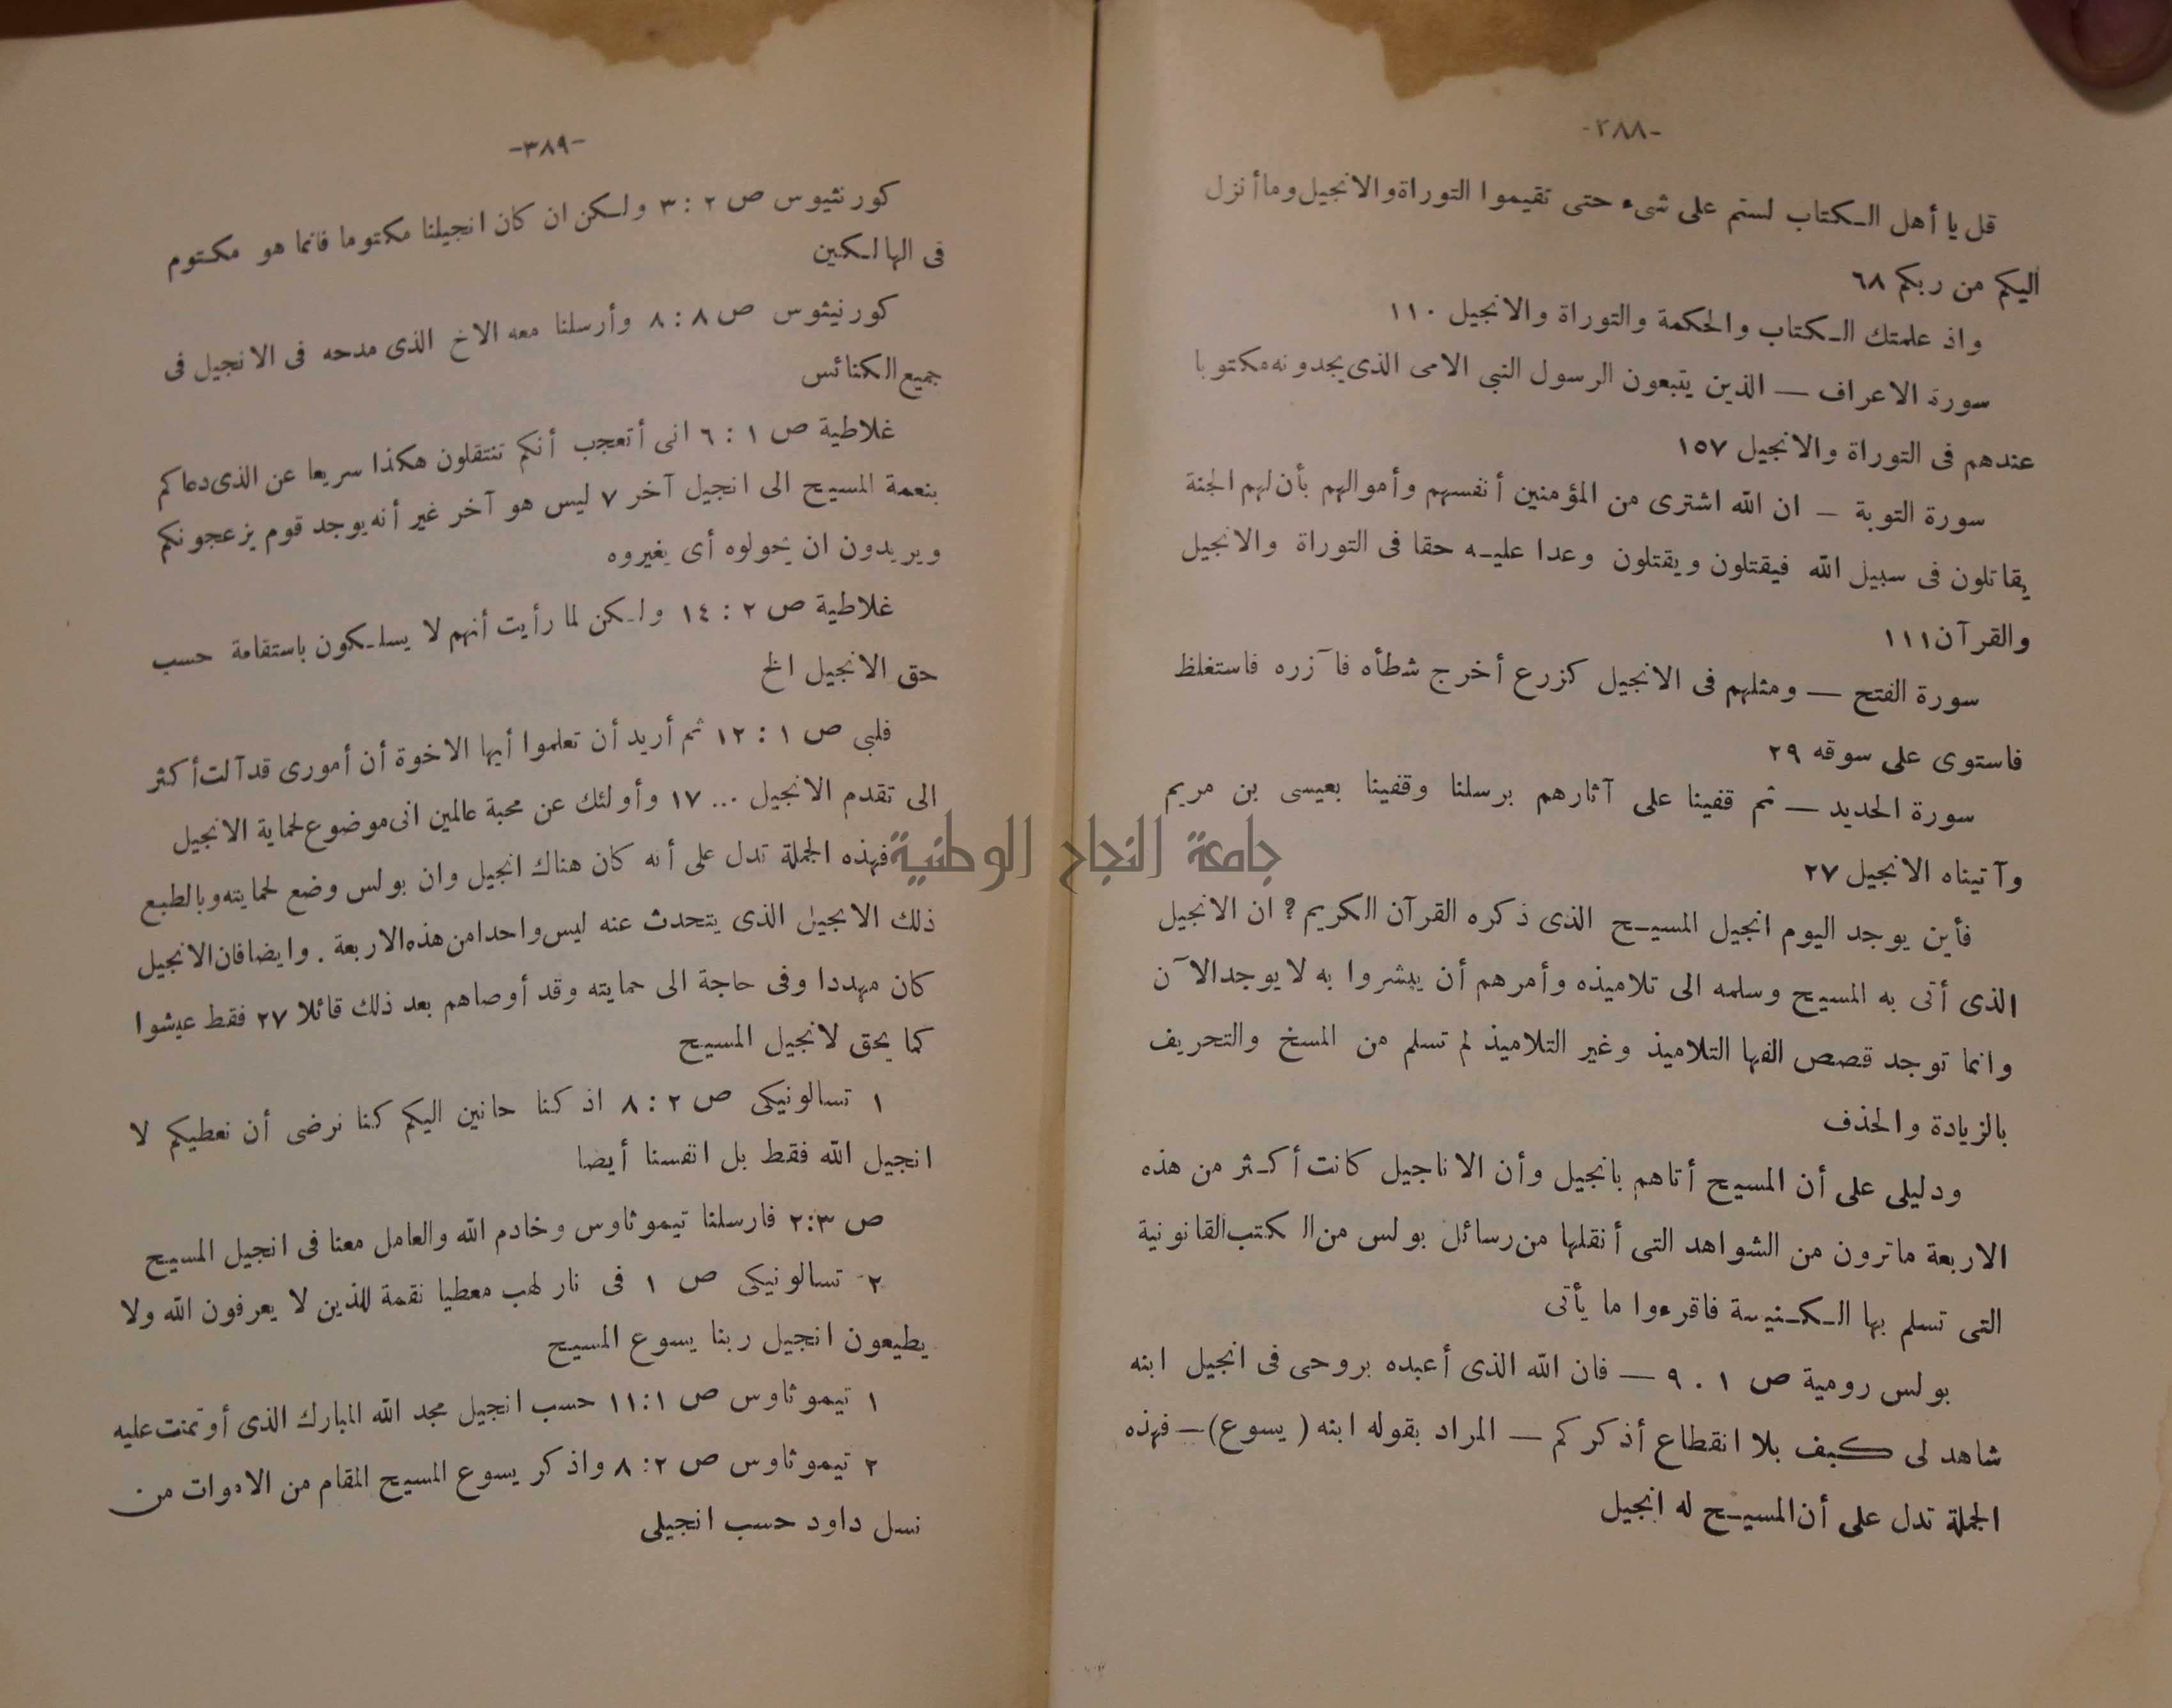 -٣٨٨-
قل يا أهل الكتاب لستم على شىء حتى تقيموا التوراة والانجيل وما أنزل
اليكم من ربكم ٦٨
واذ علمتك الكتاب والحكمة والتوراة والانجيل ١١٠
سورة الاعراف — الذين يتبعون الرسول النبى الامى الذى يجدونه مكتوبا
عندهم فى التوراة والانجيل ١٥٧
سورة التوبة — ان الله اشترى من المؤمنين أنفسهم وأموالهم بأن لهم الجنة
يقاتلون فى سبيل الله فيقتلون ويقتلون وعدا عليه حقا فى التوراة والانجيل
والقرآن ١١١
سورة الفتح — ومثلهم فى الانجيل كزرع أخرج شطأه فآزره فاستغلظ
فاستوى على سوقه ٢٩
سورة الحديد — ثم قفينا على آثارهم برسلنا وقفينا بعيسى بن مريم
وآتيناه الانجيل ٢٧
فأين يوجد اليوم انجيل المسيح الذى ذكره القرآن الكريم ؟ ان الانجيل
الذى أتى به المسيح وسلمه الى تلاميذه وأمرهم أن يبشروا به لا يوجد الآن
وانما توجد قصص الفها التلاميذ وغير التلاميذ لم تسلم من المسخ والتحريف
بالزيادة والحذف
ودليلى على أن المسيح أتاهم بانجيل وأن الاناجيل كانت أكثر من هذه
الاربعة ماترون من الشواهد التى أنقلها من رسائل بولس من الكتب القانونية
التى تسلم بها الكنيسة فاقرءوا ما يأتى
بولس رومية ص ١ . ٩ — فان الله الذى أعبده بروحى فى انجيل ابنه
شاهد لى كيف بلا انقطاع أذكركم — المراد بقوله ابنه ( يسوع ) — فهذه
الجملة تدل على أن المسيح له انجيل
-٣٨٩-
كورنثيوس ص ٢ : ٣ ولكن ان كان انجيلنا مكتوما فانما هو مكتوم
فى الهالكين
كورنيثوس ص ٨ : ٨ وأرسلنا معه الاخ الذى مدحه فى الانجيل فى
جميع الكنائس
غلاطية ص ١ : ٦ انى أتعجب أنكم تنتقلون هكذا سريعا عن الذى دعاكم
بنعمة المسيح الى انجيل آخر ٧ ليس هو آخر غير أنه يوجد قوم يزعجونكم
ويريدون ان يحولوه أى يغيروه
غلاطية ص ٢ : ١٤ ولكن لما رأيت أنهم لا يسلكون باستقامة حسب
حق الانجيل الخ
فلبى ص ١ : ١٢ ثم أريد أن تعلموا أيها الاخوة أن أمورى قد آلت أكثر
الى تقدم الانجيل ... ١٧ وأولئك عن محبة عالمين انى موضوع لحماية الانجيل
فهذه الجملة تدل على أنه كان هناك انجيل وان بولس وضع لحمايته وبالطبع
ذلك الانجيل الذى يتحدث عنه ليس واحدا من هذه الاربعة . وايضا فان الانجيل
كان مهددا وفى حاجة الى حمايته وقد أوصاهم بعد ذلك قائلا ٢٧ فقط عيشوا
كما يحق لانجيل المسيح
١ تسالونيكى ص ٢ : ٨ اذ كنا حانين اليكم كنا نرضى أن نعطيكم لا
انجيل الله فقط بل انفسنا أيضا
ص ٣:٢ فارسلنا تيموثاوس وخادم الله والعامل معنا فى انجيل المسيح
٢ تسالونيكى ص ١ فى نار لهب معطيا نقمة للذين لا يعرفون الله ولا
يطيعون انجيل ربنا يسوع المسيح
١ تيموثاوس ص ١:١١ حسب انجيل مجد الله المبارك الذى أوتمنت عليه
٢ تيموثاوس ص ٢ : ٨ واذكر يسوع المسيح المقام من الاموات من
نسل داود حسب انجيلى
جامعة النجاح الوطنية